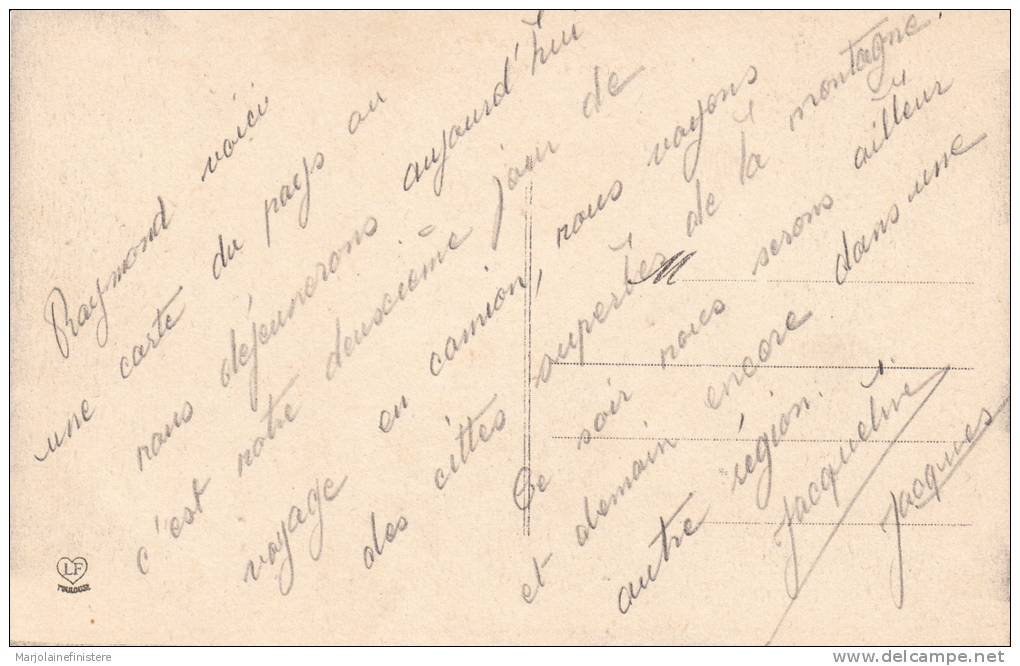 Raymond voici
une carte du pays ou
nous déjeunerons aujourd'hui
c'est notre deuxcième jour de
voyage en camion, nous voyons
des cittes superbes de la montagne.
Ce soir nous serons ailleur
et demain encore dans une
autre région.
Jacqueline
Jacques
LF
TOULOUSE
Marjolainefinistere
delcampe.net